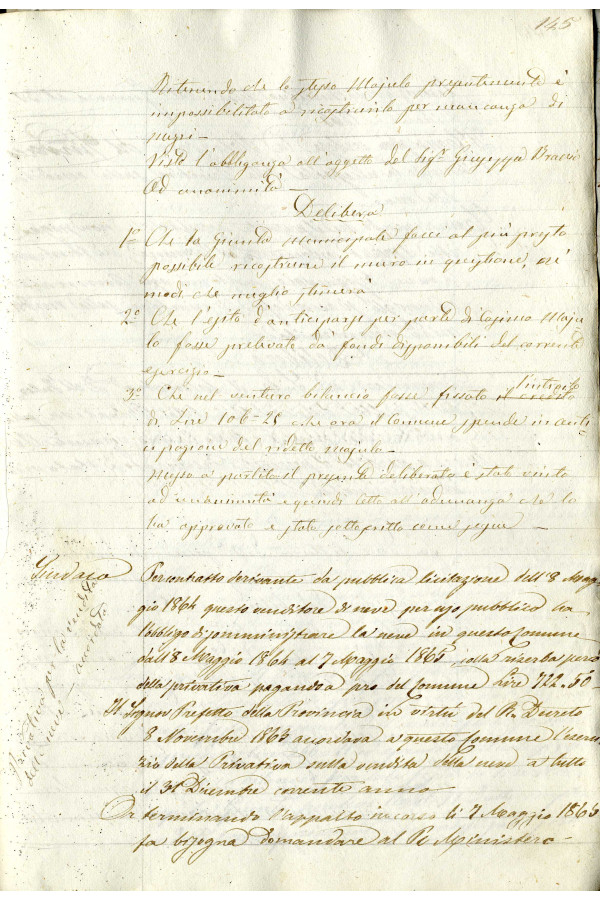 145
Ritenendo che lo stesso Majulo presentemente è
impossibilitato a ricostruirlo per mancanza di
mezzi —
Vista l'obbliganza all'oggetto del Sigr Giuseppe
Ad unanimità —
Delibera
1º Che la Giunta Municipale facci al più presto
possibile ricostruire il muro in questione, nei
modi che meglio stimerà
2º Che l'esito d'anticiparsi per parte di Cosimo Maju
lo fosse prelevato da' fondi disponibili del corrente
esercizio —
3º Che nel venturo bilancio fosse fissato l'introito
di Lire 106-25 che ora il Comune spende in anti
cipazione del ridetto Majulo —
Messo a partito il presente deliberato è stato vinto
ad unanimità e quindi letto all'adunanza che lo
ha approvato è stato sottoscritto come segue —
Sindaco
Per contratto derivante da pubblica licitazione dell'8 Mag
gio 1864 questo venditore di neve per uso pubblico ha
l'obbligo di somministrare la neve in questo Comune
dall'8 Maggio 1864 al 7 Maggio 1865 sulla riserba però
della privativa pagando a pro del Comune Lire 722.50 —
Il Signor Prefetto della Provincia in virtù del R. Decreto
8 Novembre 1863 accordava a questo Comune l'eserci
zio della Privativa sulla vendita della neve a tutto
il 31 Dicembre corrente anno
Or terminando l'appalto in corso li 7 Maggio 1865
fa bisogna domandare al R. Ministero —
Privativa per la vendita
della neve — accordata